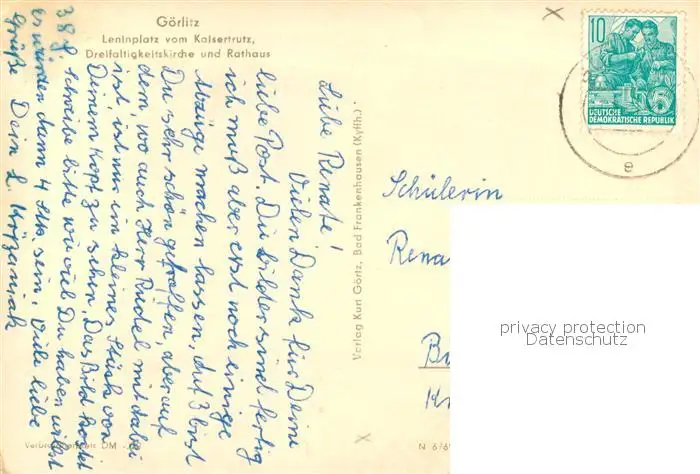 Görlitz
Leninplatz vom Kaisertrutz,
Dreifaltigkeitskirche und Rathaus
10
DEUTSCHE
DEMOKRATISCHE REPUBLIK
e
Liebe Renate!
Vielen Dank für Deine
liebe Post. Die Bilder sind fertig
ich muß aber erst noch einige
Abzüge machen lassen. Auf 3 bist
Du sehr schön getroffen, aber auf
dem, wo auch Herr Rudel mit dabei
ist, ist nur ein kleines Stück von
Deinem Kopf zu sehen. Das Bild kostet
38 Pf. Schreibe bitte wieviel Du haben willst
es würden dann 4 Stk. sein. Viele liebe
Grüße Dein L.
Verlag Kurt Görtz, Bad Frankenhausen (Kyffh.)
Schülerin
Rena
privacy protection
Datenschutz
DM